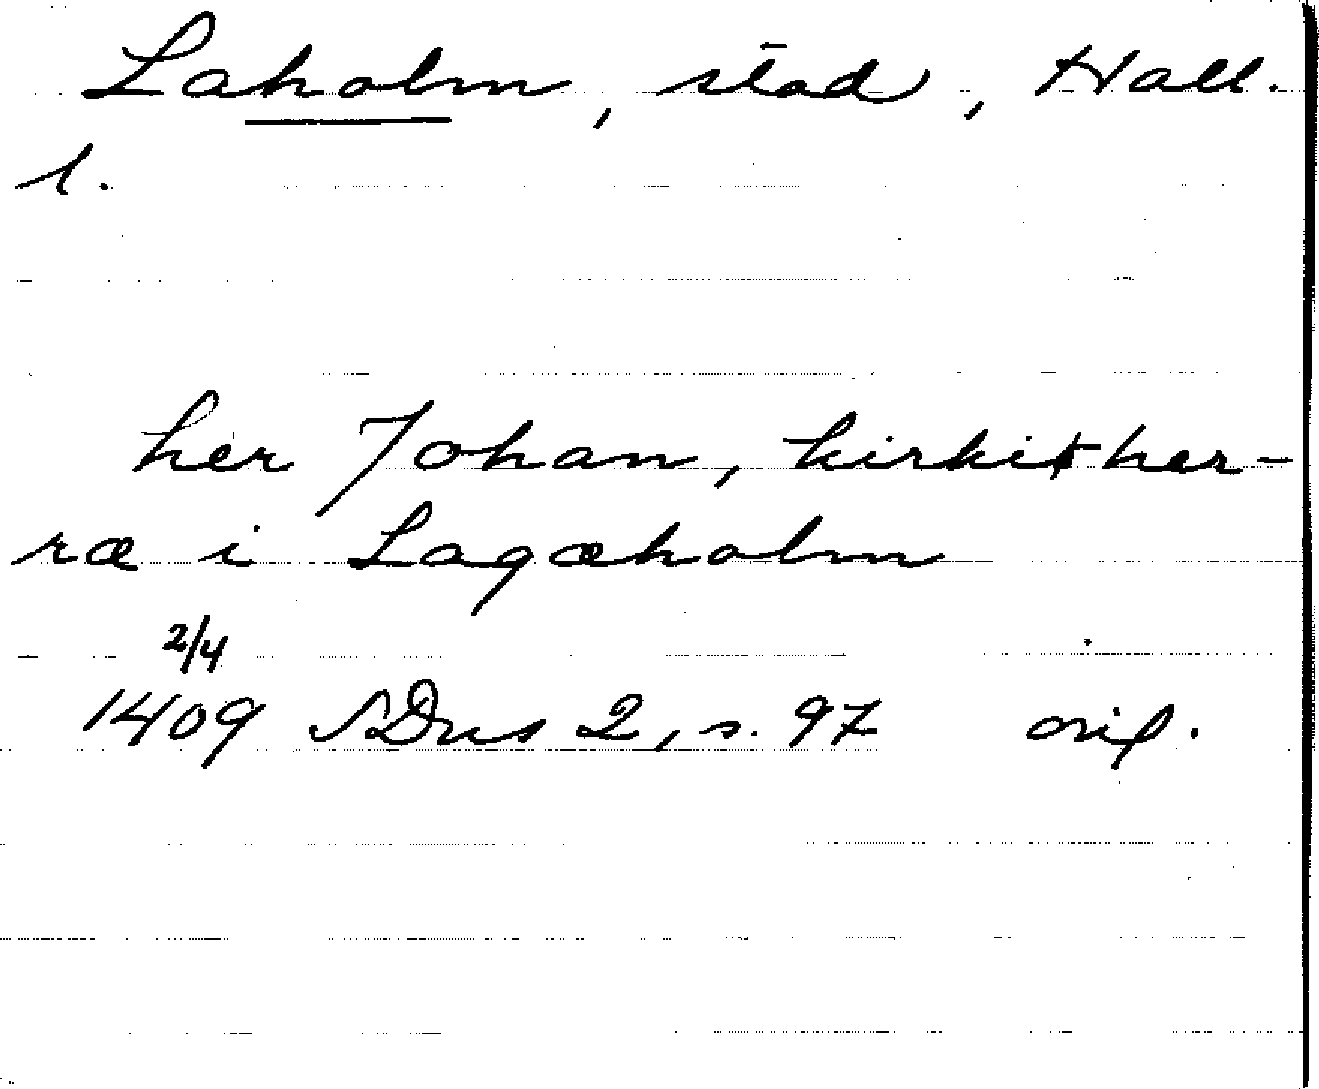 Laholm, stad, Hall.
l.
her Johan, kirkither-
ræ i Lagæholm
2/4
1409 SDns 2, s. 97 orig.